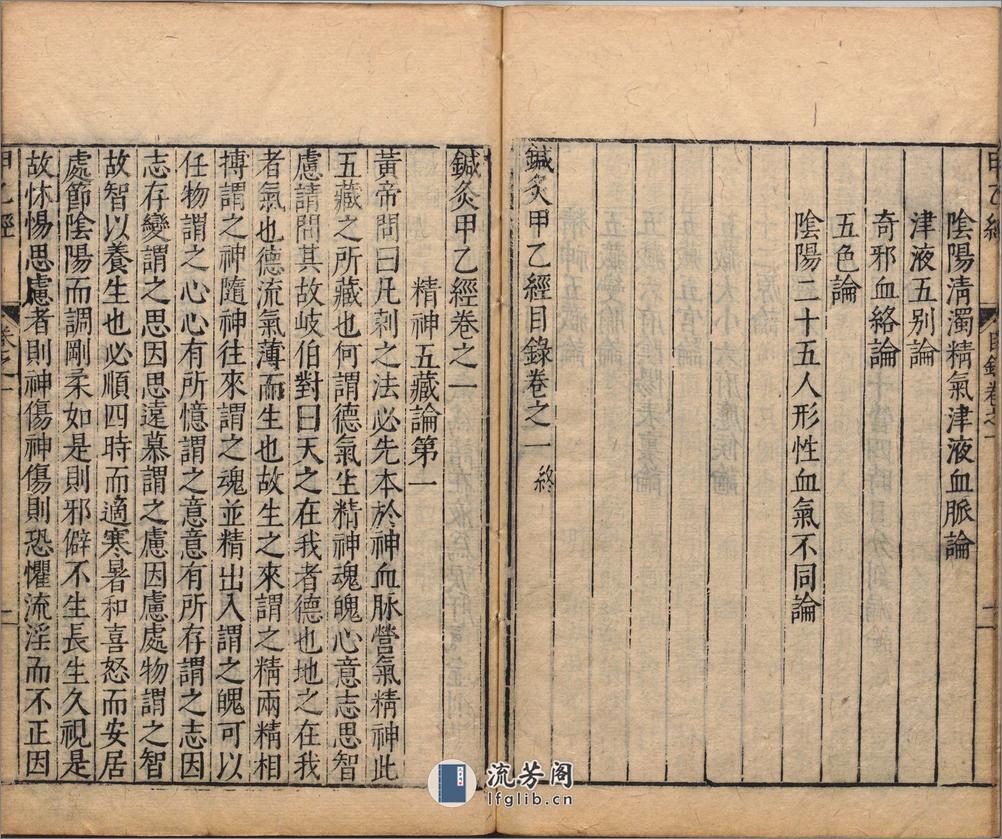 陰陽清濁精氣津液血脈論
津液五别論
奇邪血絡論
五色論
陰陽二十五人形性血氣不同論
鍼灸甲乙經目錄卷之一 終
鍼灸甲乙經卷之一
精神五藏論第一
黃帝問曰凡刺之法必先本於神血脉營氣精神此
五藏之所藏也何謂德氣生精神魂魄心意志思智
慮請問其故岐伯對曰天之在我者德也地之在我
者氣也德流氣薄而生也故生之來謂之精兩精相
搏謂之神隨神往來謂之魂並精出入謂之魄可以
任物謂之心心有所憶謂之意意有所存謂之志因
志存變謂之思因思遠慕謂之慮因慮處物謂之智
故智以養生也必順四時而適寒暑和喜怒而安居
處節陰陽而調剛柔如是則邪僻不生長生久視是
故怵惕思慮者則神傷神傷則恐懼流淫而不正因
甲乙經
卷之一
一
流芳阁
lfglib.cn